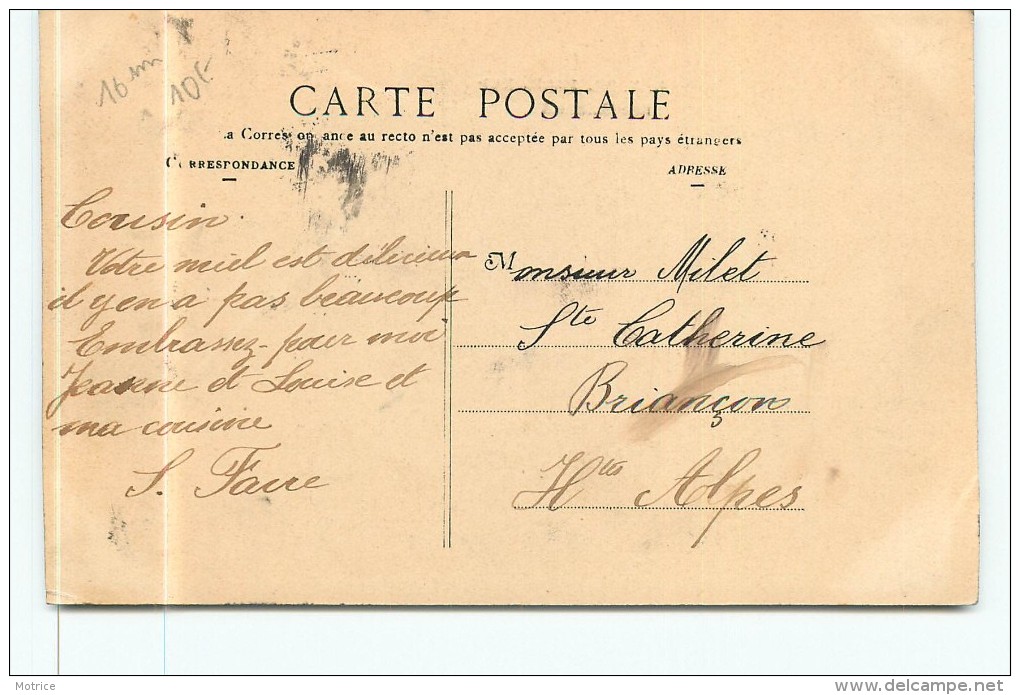 16 mm
10€
CARTE POSTALE
a Corres on ance au recto n'est pas acceptée par tous les pays étrangers
CORRESPONDANCE
ADRESSE
Cousin.
Votre miel est délicieux
il y en a pas beaucoup
Embrassez pour moi
Jeanne et Louise et
ma cousine
S. Favre
Monsieur Milet
Ste Catherine
Briançon
Htes Alpes
Motrice
delcampe.net